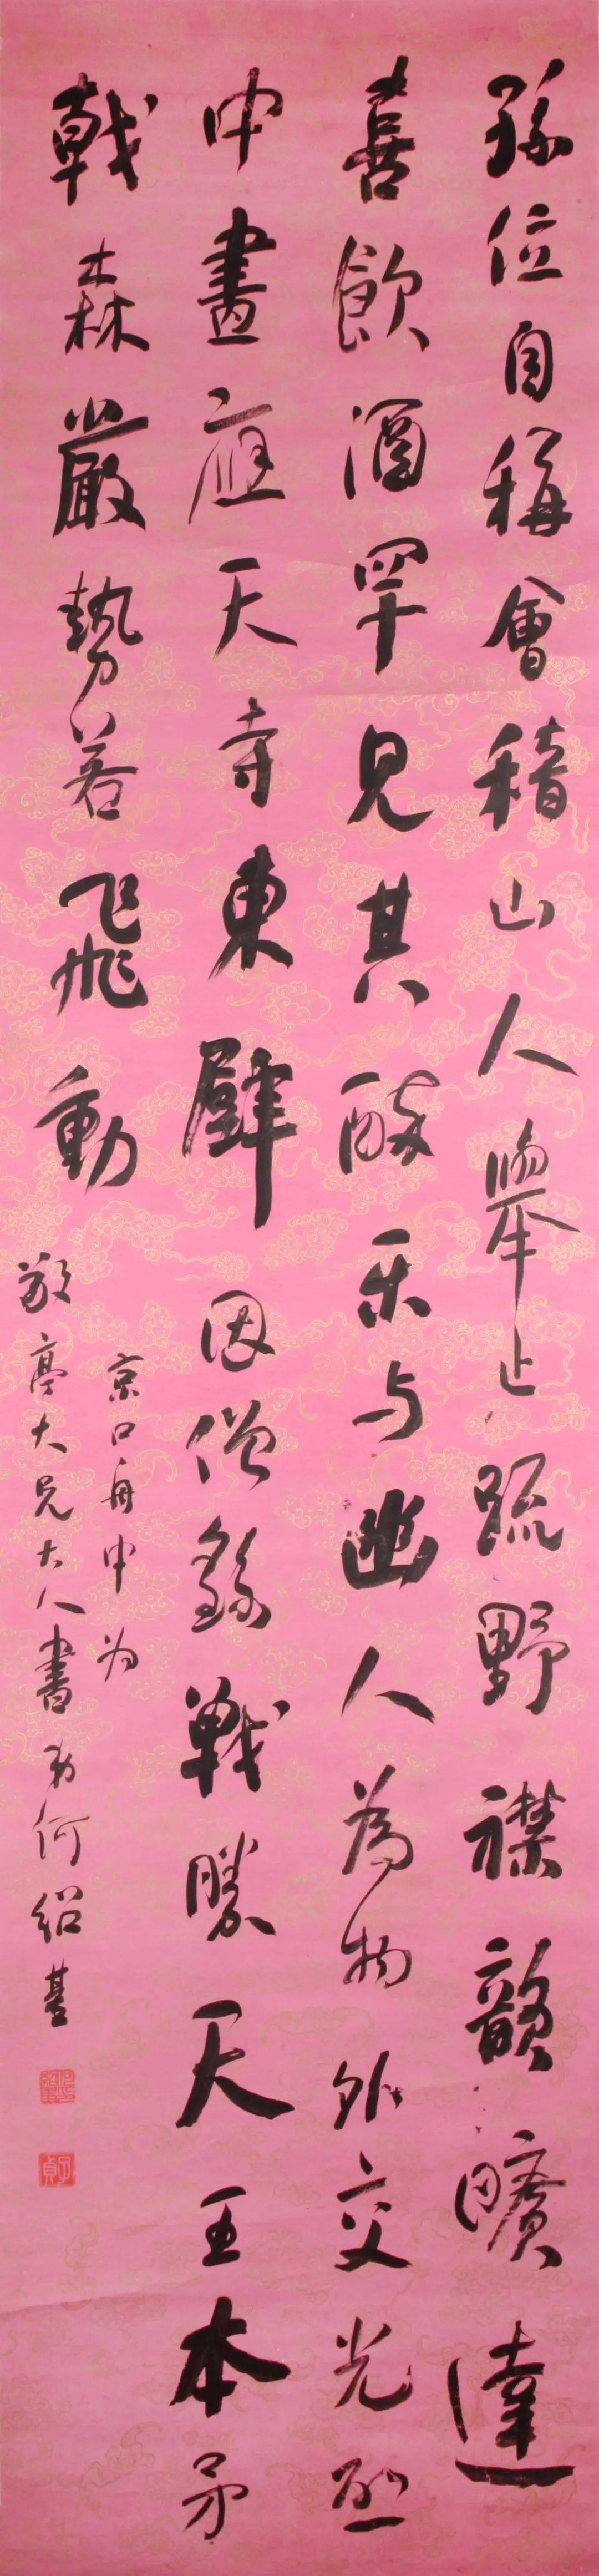 孫位自稱會稽山人舉止疏野襟韻曠達
喜飲酒罕見其酣樂与幽人為物外交光啟
中畫應天寺東壁因僧繇戰勝天王本矛
戟森嚴勢若飛動
京口舟中为
敬亭大兄大人書弟何紹基
子貞